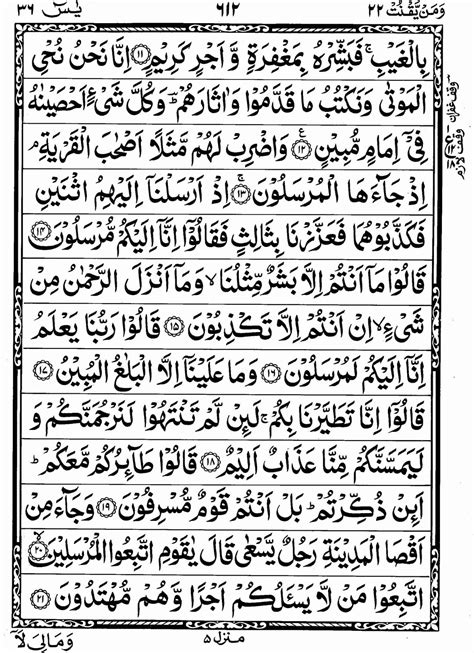 وَمَنْ يَّقْنُتْ ٢٢ ٦١٢ يٰسٓ ٣٦
بِالْغَيْبِ ۚ فَبَشِّرْهُ بِمَغْفِرَةٍ وَّ اَجْرٍ كَرِيْمٍ ﴿١١﴾ اِنَّا نَحْنُ نُحْىِ
الْمَوْتٰى وَنَكْتُبُ مَا قَدَّمُوْا وَاٰثَارَهُمْ ؕ وَكُلَّ شَىْءٍ اَحْصَيْنٰهُ
فِىْٓ اِمَامٍ مُّبِيْنٍ ﴿١٢﴾ وَاضْرِبْ لَهُمْ مَّثَلًا اَصْحٰبَ الْقَرْيَةِ ۘ
اِذْ جَآءَهَا الْمُرْسَلُوْنَ ﴿١٣﴾ اِذْ اَرْسَلْنَاۤ اِلَيْهِمُ اثْنَيْنِ
فَكَذَّبُوْهُمَا فَعَزَّزْنَا بِثَالِثٍ فَقَالُوْۤا اِنَّاۤ اِلَيْكُمْ مُّرْسَلُوْنَ ﴿١٤﴾
قَالُوْا مَاۤ اَنْتُمْ اِلَّا بَشَرٌ مِّثْلُنَا ۙ وَمَاۤ اَنْزَلَ الرَّحْمٰنُ مِنْ
شَىْءٍ ۙ اِنْ اَنْتُمْ اِلَّا تَكْذِبُوْنَ ﴿١٥﴾ قَالُوْا رَبُّنَا يَعْلَمُ
اِنَّاۤ اِلَيْكُمْ لَمُرْسَلُوْنَ ﴿١٦﴾ وَمَا عَلَيْنَاۤ اِلَّا الْبَلٰغُ الْمُبِيْنُ ﴿١٧﴾
قَالُوْۤا اِنَّا تَطَيَّرْنَا بِكُمْ ۚ لَىِٕنْ لَّمْ تَنْتَهُوْا لَنَرْجُمَنَّكُمْ وَ
لَيَمَسَّنَّكُمْ مِّنَّا عَذَابٌ اَلِيْمٌ ﴿١٨﴾ قَالُوْا طَآئِرُكُمْ مَّعَكُمْ ؕ
اَىِٕنْ ذُكِّرْتُمْ ؕ بَلْ اَنْتُمْ قَوْمٌ مُّسْرِفُوْنَ ﴿١٩﴾ وَجَآءَ مِنْ
اَقْصَا الْمَدِيْنَةِ رَجُلٌ يَّسْعٰى قَالَ يٰقَوْمِ اتَّبِعُوا الْمُرْسَلِيْنَ ﴿٢٠﴾
اتَّبِعُوْا مَنْ لَّا يَسْـَٔلُكُمْ اَجْرًا وَّهُمْ مُّهْتَدُوْنَ ﴿٢١﴾
منزل ٥ وَمَالِىَ لَاۤ